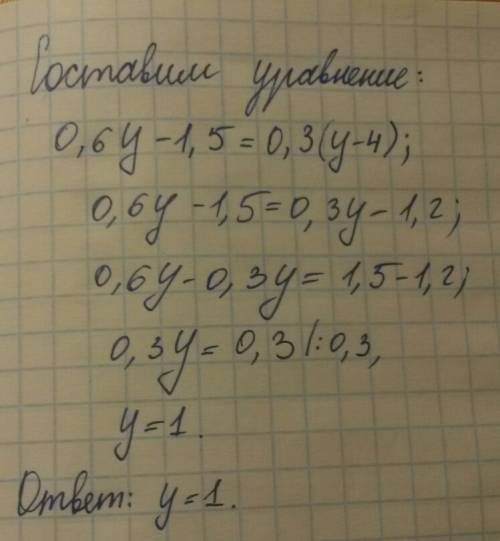 Составим уравнение:
0,6y-1,5=0,3(y-4);
0,6y-1,5=0,3y-1,2;
0,6y-0,3y=1,5-1,2;
0,3y=0,3 |:0,3,
y=1.
Ответ: y=1.